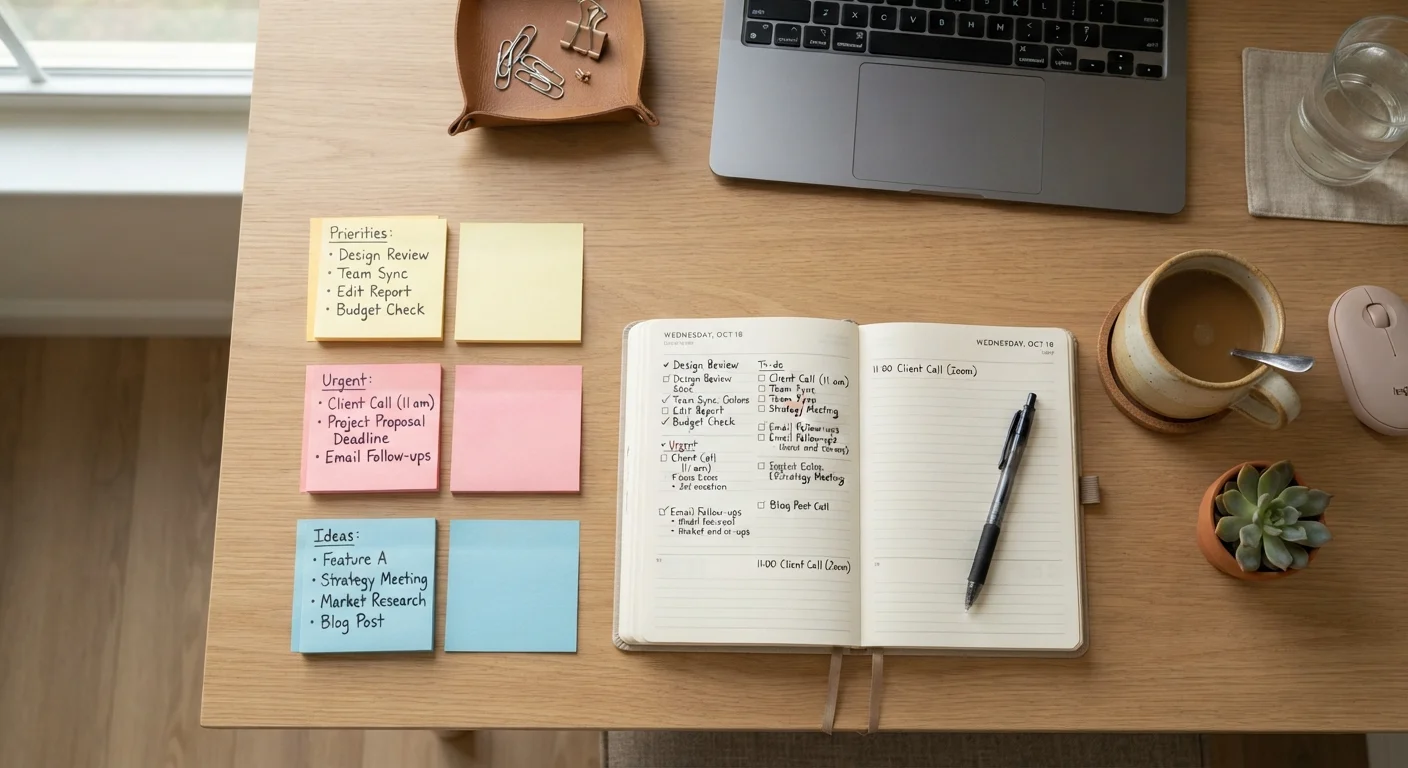 Priorities:
• Design Review
• Team Sync
• Edit Report
• Budget Check
Urgent:
• Client Call (11 am)
• Project Proposal
Deadline
• Email Follow-ups
Ideas:
• Feature A
• Strategy Meeting
• Market Research
• Blog Post
WEDNESDAY, OCT 16
✓ Design Review
☐ Design Review
✓ Team Sync, Colors
☐ Edit Report
✓ Budget Check
✓ Urgent
☐ Client
11/am)
☑ Email Follow-ups
To-do
☐ Client Call (11 am)
☐ Team Sync
☐ Strategy Meeting
☐ Email Follow-ups
☐ Email Follow-ups
Strategy Meeting
☐ Blog Peet Call
11:00 Client Call (Zoom)
WEDNESDAY, OCT 16
11:00 Client Call (Zoom)